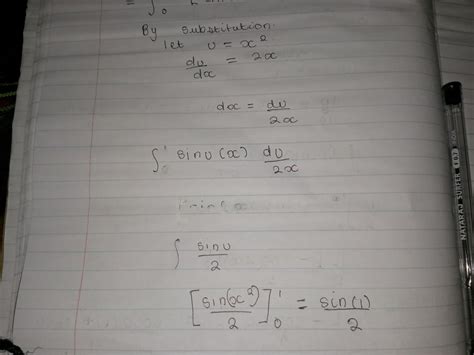 = ∫₀
By substitution
let u = x²
du/dx = 2x
dx = du/2x
∫₀¹ sinu (x) du/2x
∫ sinu/2
[sin(x²)/2]₀¹ = sin(1)/2
NATARAJ SURFER